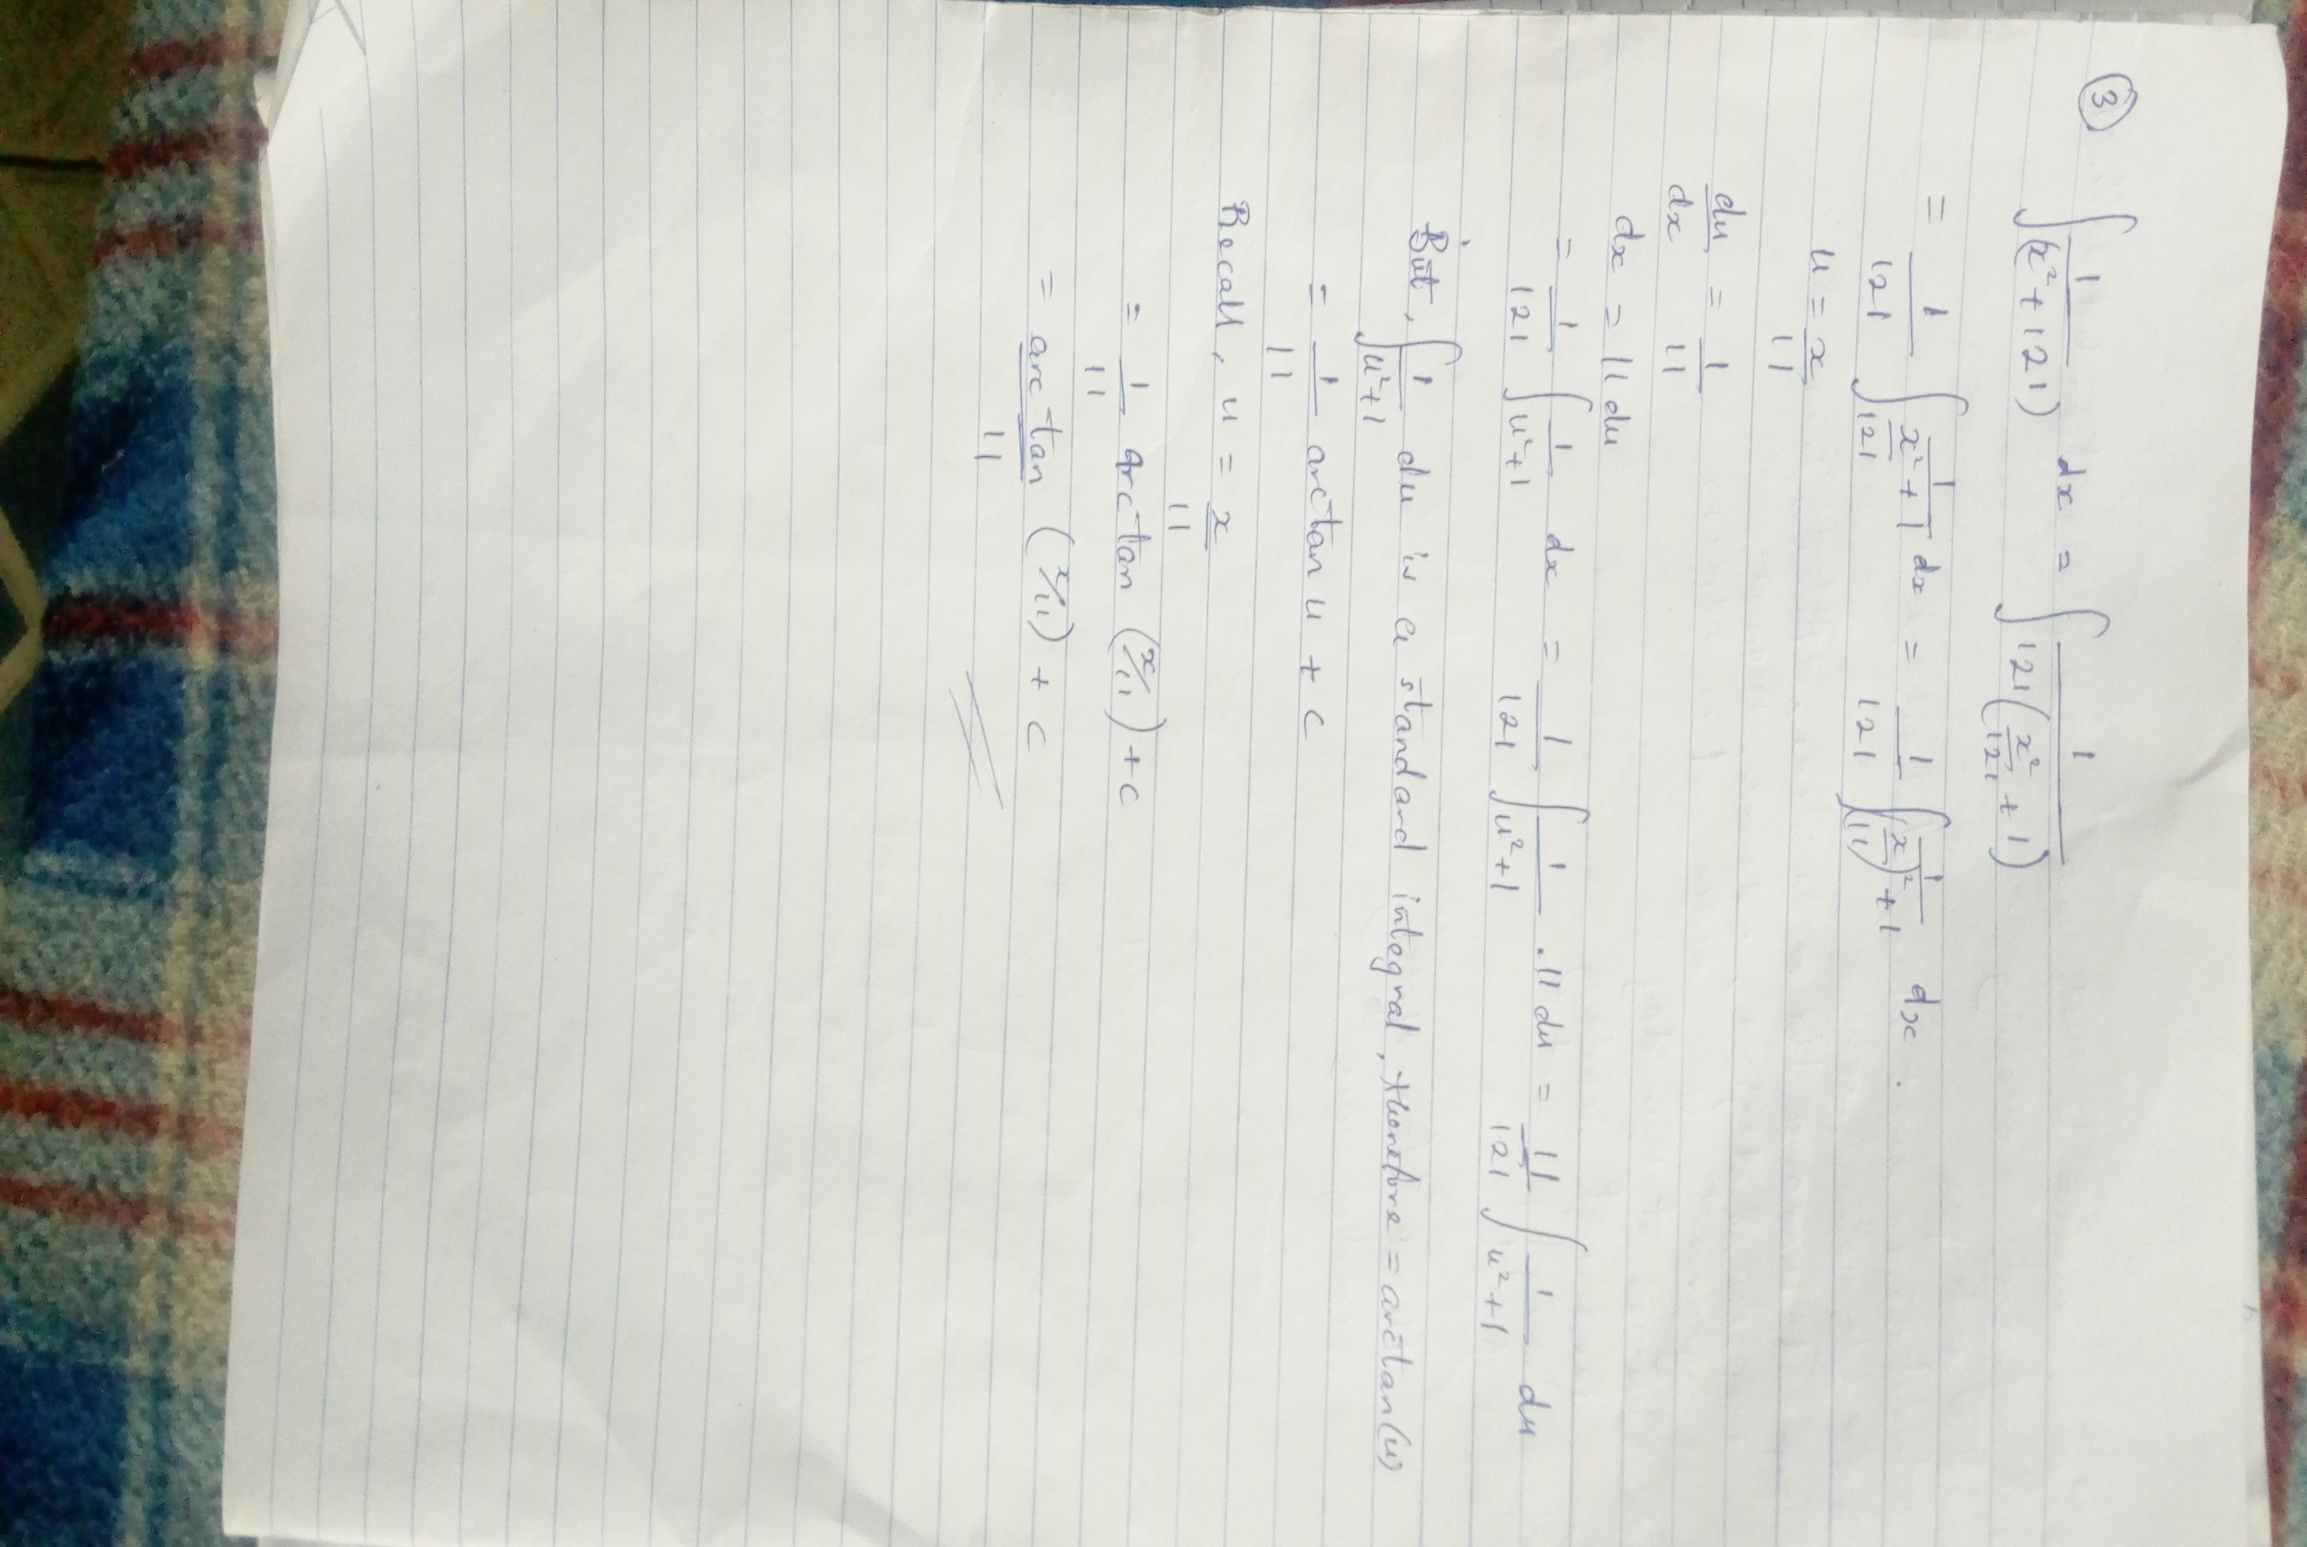 ③ ∫ 1/(x²+121) dx = ∫ 1/121(x²/121 + 1)
= 1/121 ∫ 1/x²/121 + 1 dx = 1/121 ∫ 1/(x/11)² + 1 dx.
u = x/11
du/dx = 1/11
dx = 11 du
= 1/121 ∫ 1/u²+1 dx = 1/121 ∫ 1/u²+1 . 11 du = 11/121 ∫ 1/u²+1 du
But, ∫ 1/u²+1 du is a standard integral, therefore = arctan(u)
= 1/11 arctan u + c
Recall, u = x/11
= 1/11 arctan (x/11) + c
= arctan/11 (x/11) + c